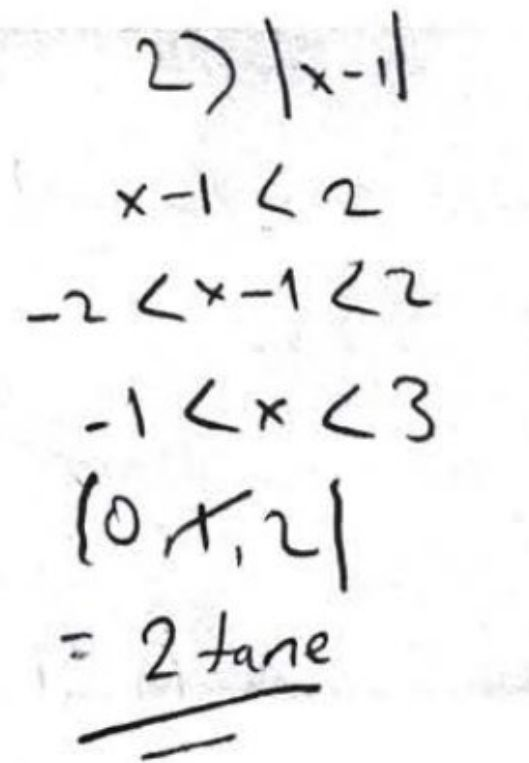 2) |x-1|
x-1 < 2
-2 < x-1 < 2
-1 < x < 3
|0, 1, 2|
= 2 tane